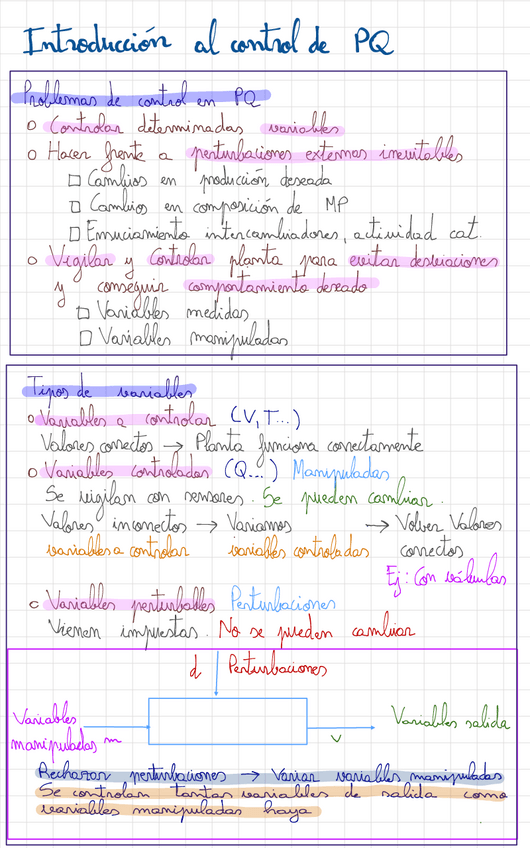 Introducción al control de PQ
Problemas de control en PQ
o Controlar determinadas variables
o Hacer frente a perturbaciones externas inevitables
□ Cambios en producción deseada
□ Cambios en composición de MP
□ Ensuciamiento intercambiadores, actividad cat.
o Vigilar y Controlar planta para evitar desviaciones
y conseguir comportamiento deseado
□ Variables medidas
□ Variables manipuladas
Tipos de variables
o Variables a controlar (V, T...)
Valores correctos → Planta funciona correctamente
o Variables controladas (Q...) Manipuladas
Se vigilan con sensores. Se pueden cambiar.
Valores incorrectos → Variamos → Volver Valores
variables a controlar variables controladas correctos
Ej: Con válvulas
o Variables perturbables Perturbaciones
Vienen impuestas. No se pueden cambiar
d Perturbaciones
Variables
manipuladas m
Variables salida
v
Rechazar perturbaciones → Variar variables manipuladas
Se controlan tantas variables de salida como
variables manipuladas haya